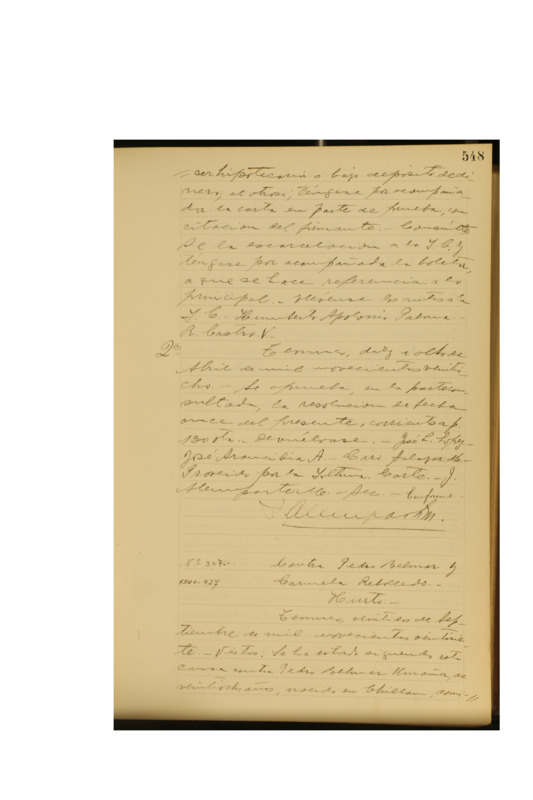 548
ser hipotecaria o bajo deposito de di-
nero, al otrosi; téngase por acompaña-
da la carta en parte de prueba, con
citacion del firmante. - Consúlte
se la escarcelacion a la I. C. y
téngase por acompañada la boleta,
a que se hace referencia a lo
principal. - Elévense los autos a la
I. C. - Humberto Apolonio Palma -
R. Castro V.
2a Temuco, diez i ocho de
Abril de mil novecientos veinti
ocho - Se aprueba, en la parte con
sultada, la resolucion de fecha
once del presente, corriente a f.
130 vta. Devuélvase. - José L. López -
José Arancibia A. - Ciro Salazar M. -
Proveido por la Iltma. Corte. - J.
M. - Sec. - Conforme -
Contra Pedro Belmar y
Carmela Rebolledo. -
Hurto. -
Temuco, veintidos de Sep-
tiembre de mil novecientos veintisie
te. - Vistos: Se ha estado siguiendo esta
causa contra Pedro Belmar Umaña, de
veintiocho años, nacido en Chillan, domi-